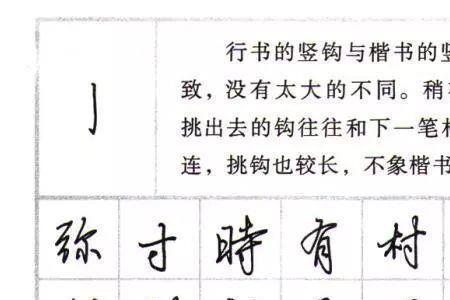 亅
行书的竖钩与楷书的竖
致，没有太大的不同。稍
挑出去的钩往往和下一笔
连，挑钩也较长，不象楷书
弥 寸 時 有 村